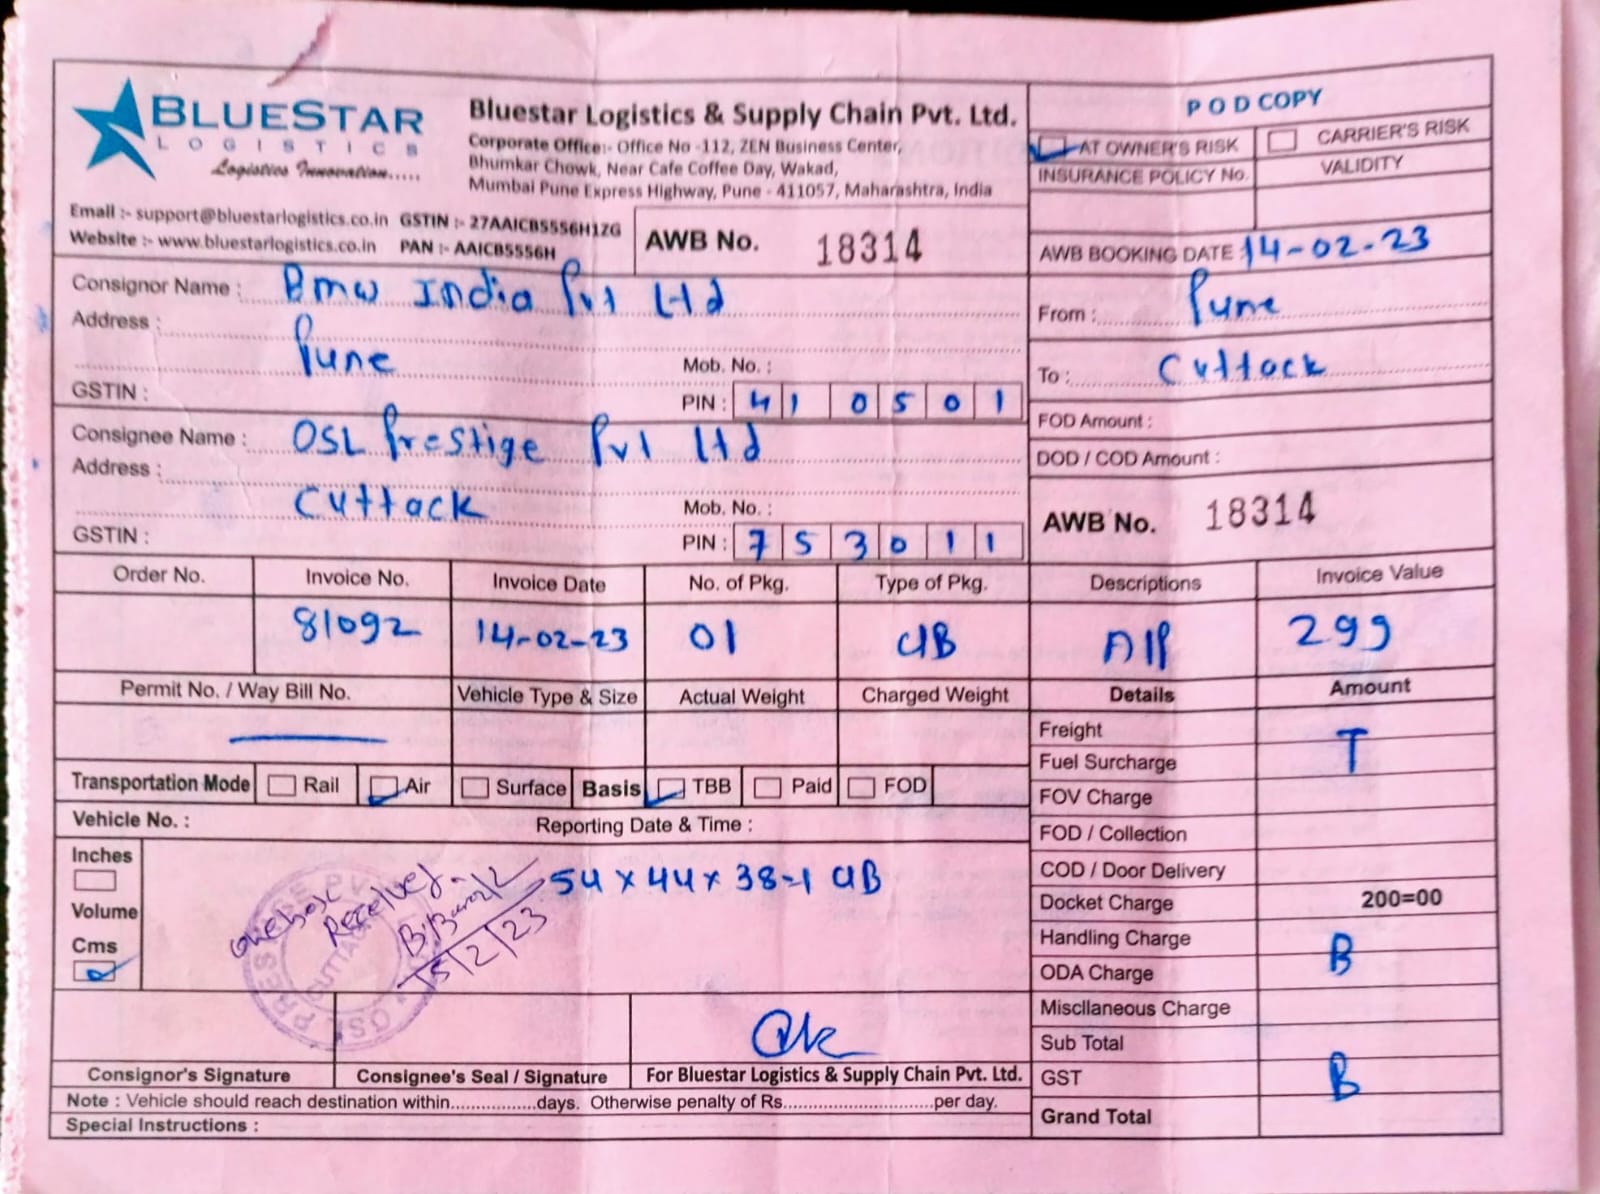 BLUESTAR
LOGISTICS
Logistics Innovation.....
Bluestar Logistics & Supply Chain Pvt. Ltd.
Corporate Office:- Office No -112, ZEN Business Center,
Bhumkar Chowk, Near Cafe Coffee Day, Wakad,
Mumbai Pune Express Highway, Pune - 411057, Maharashtra, India
Email :- support@bluestarlogistics.co.in GSTIN :- 27AAICB5556H1ZG
Website :- www.bluestarlogistics.co.in PAN :- AAICB5556H
AWB No. 18314
POD COPY
AT OWNER'S RISK CARRIER'S RISK
INSURANCE POLICY No. VALIDITY
AWB BOOKING DATE 14-02-23
From : Pune
To : Cuttack
FOD Amount :
DOD / COD Amount :
AWB No. 18314
Consignor Name : Bmw India Pvt Ltd
Address :
Pune Mob. No. :
GSTIN : PIN : 410501
Consignee Name : OSL Prestige Pvt Ltd
Address :
Cuttack Mob. No. :
GSTIN : PIN : 753011
Order No. Invoice No. Invoice Date No. of Pkg. Type of Pkg. Descriptions Invoice Value
81092 14-02-23 01 299
Permit No. / Way Bill No. Vehicle Type & Size Actual Weight Charged Weight Details Amount
Freight T
Fuel Surcharge
FOV Charge
FOD / Collection
COD / Door Delivery
Docket Charge 200=00
Handling Charge B
ODA Charge
Miscllaneous Charge
Sub Total
GST B
Grand Total
Transportation Mode Rail Air Surface Basis TBB Paid FOD
Vehicle No. : Reporting Date & Time :
Inches
Volume
Cms
54 x 44 x 38
Received
15/2/23
CUTTACK
Consignor's Signature Consignee's Seal / Signature For Bluestar Logistics & Supply Chain Pvt. Ltd.
Note : Vehicle should reach destination within.................days. Otherwise penalty of Rs..............................per day.
Special Instructions :